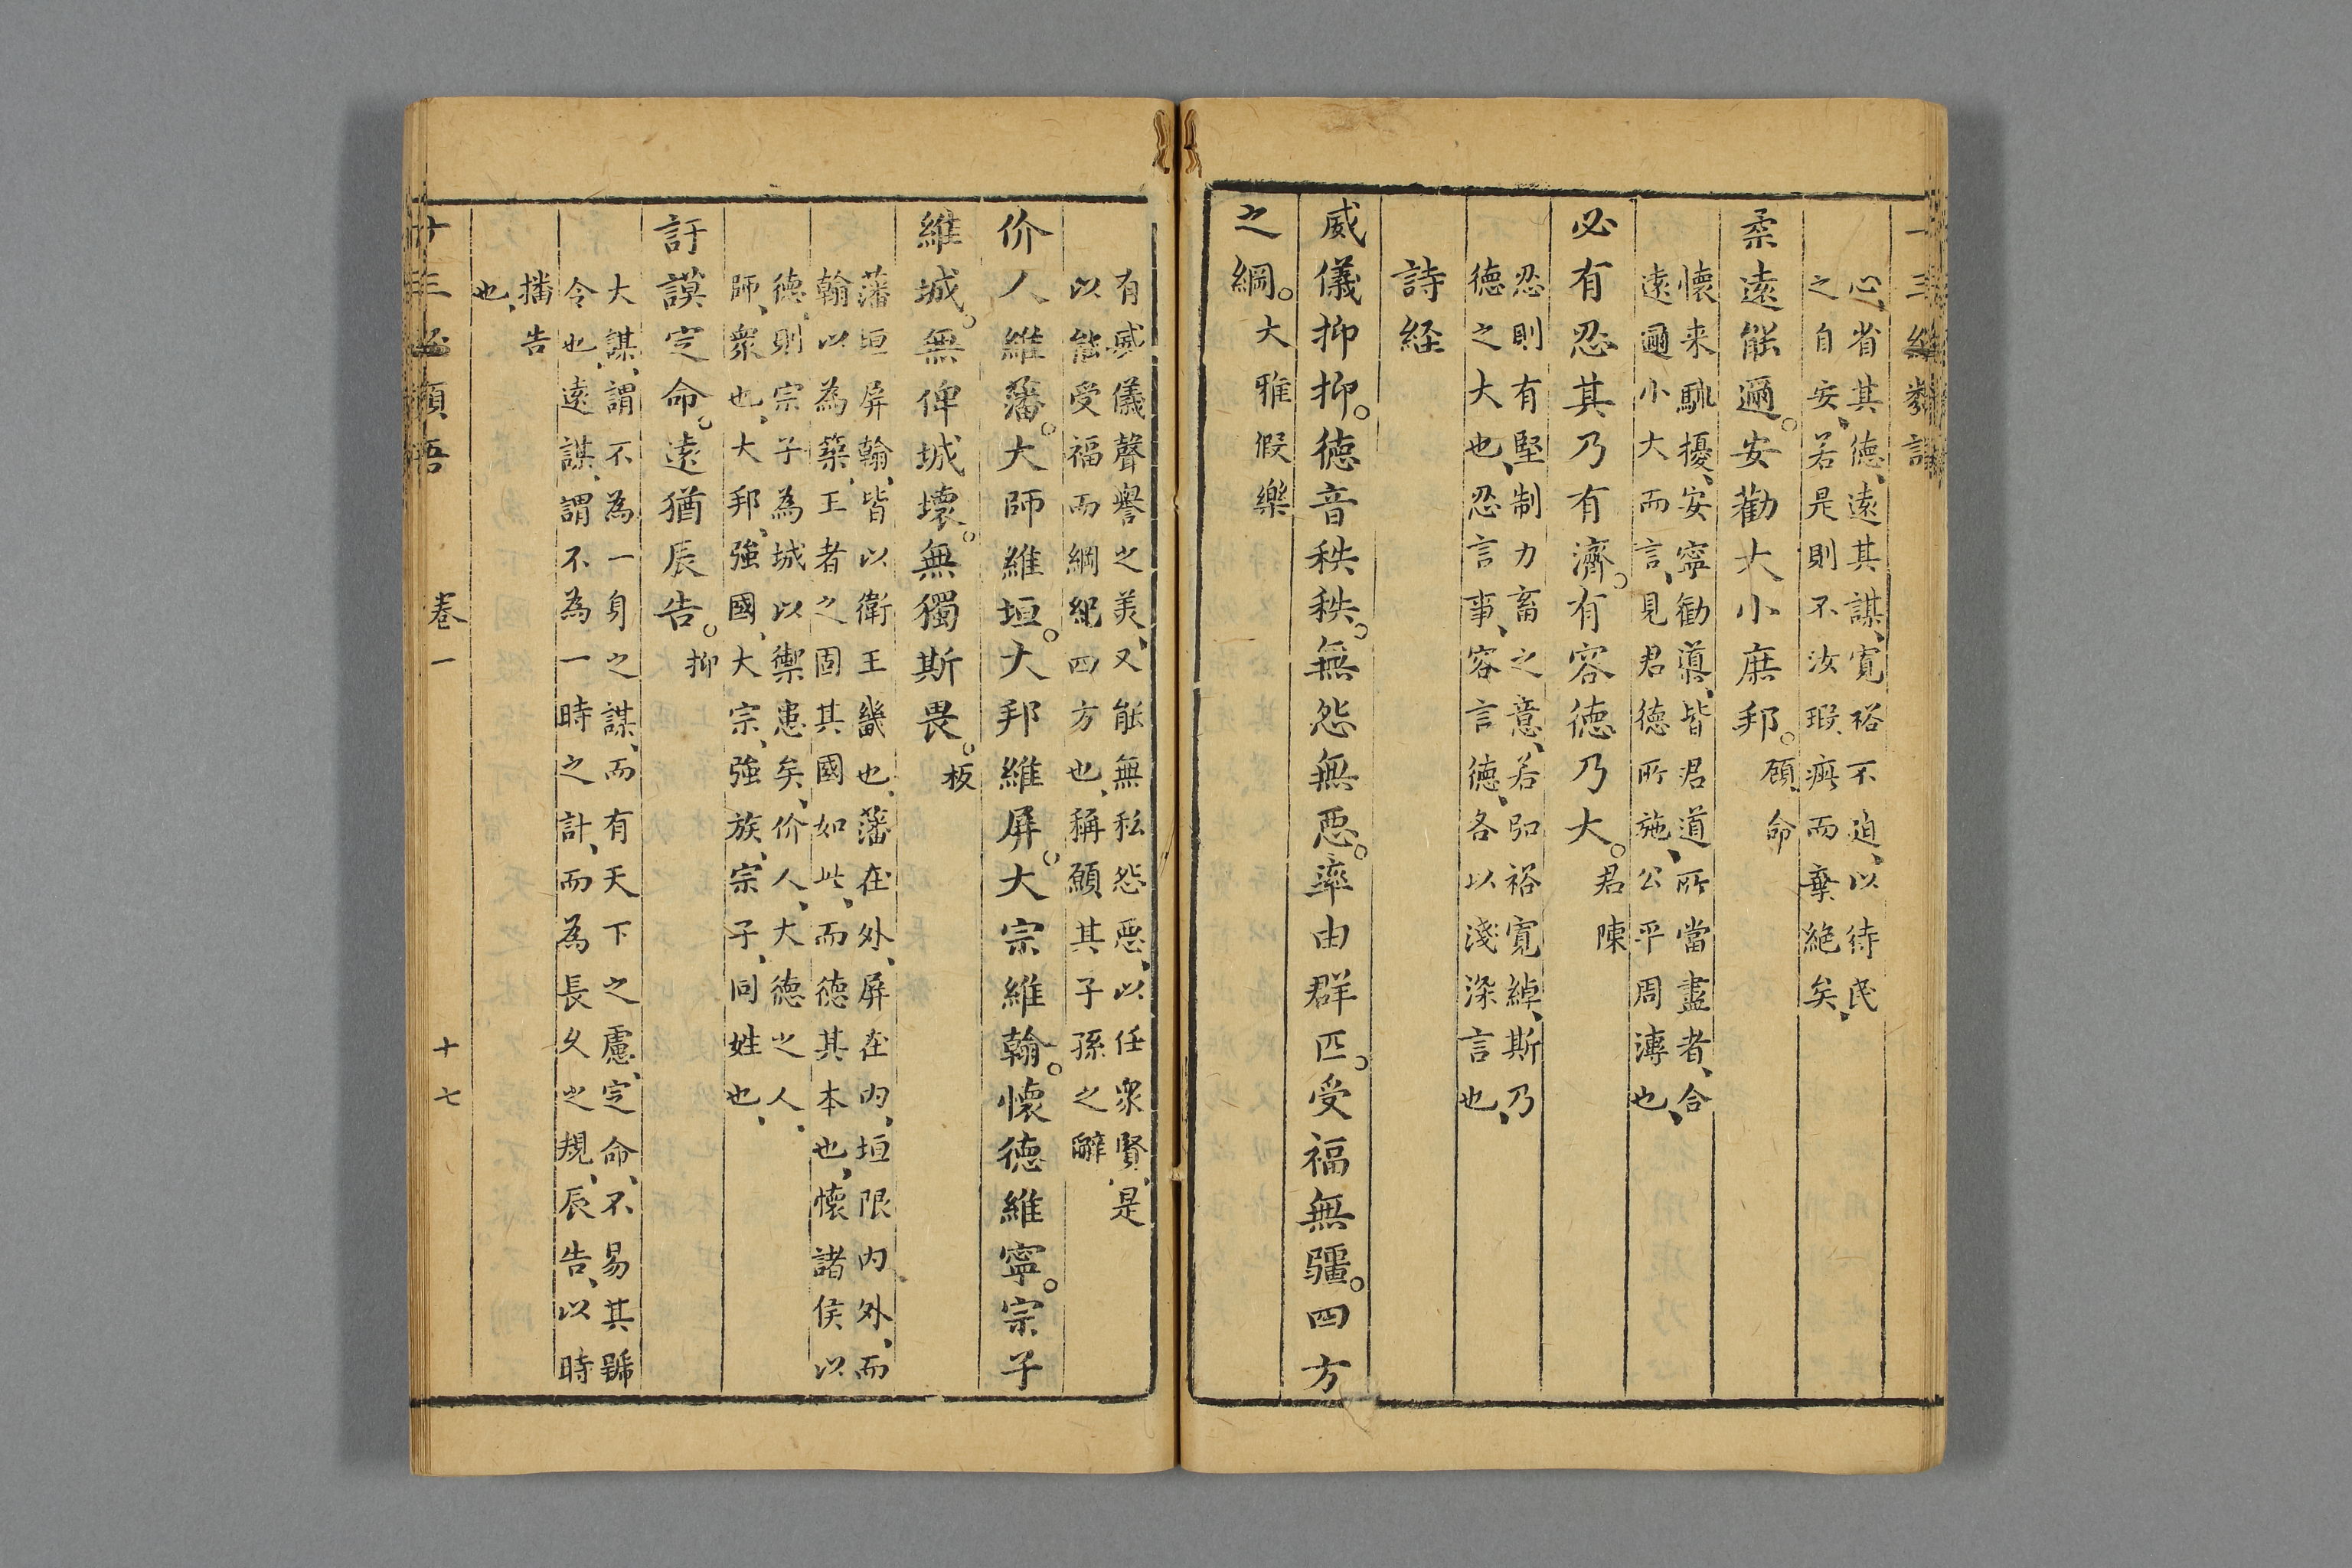 心、省其德、遠其謀、寛裕不迫、以待民
之自安、若是則不汝瑕疵而棄絶矣、
柔遠能邇。安勸大小庶邦。顧命
懐来馴擾、安寧勧導、皆君道、所當盡者、合
遠邇小大而言、見君徳所施、公平周溥也、
必有忍其乃有濟。有容徳乃大。君陳
忍則有堅制力畜之意、若弘裕寛綽、斯乃
徳之大也、忍言事、容言徳、各以淺深言也、
詩経
威儀抑抑。徳音秩秩。無怨無悪。率由群匹。受福無疆。四方
之綱。大雅假樂
有威儀聲譽之美、又能無私怨悪、以任衆賢、是
以能受福而綱紀四方也、稱願其子孫之辭、
价人維藩。大師維垣。大邦維屏。大宗維翰。懐徳維寧。宗子
維城。無俾城壊。無獨斯畏。板
藩垣屏翰、皆以衛王畿也、藩在外、屏在内、垣限内外、而
翰以為築、王者之固其國如此、而徳其本也、懐諸侯以
徳、則宗子為城以禦患矣、价人、大徳之人、
師、衆也、大邦、強國、大宗、強族、宗子、同姓也、
訏謨定命。遠猶辰告。抑
大謀、謂不為一身之謀、而有天下之慮、定命、不易其號
令也、遠謀、謂不為一時之計、而為長久之規、辰告、以時
播告
也、
卷一
十七